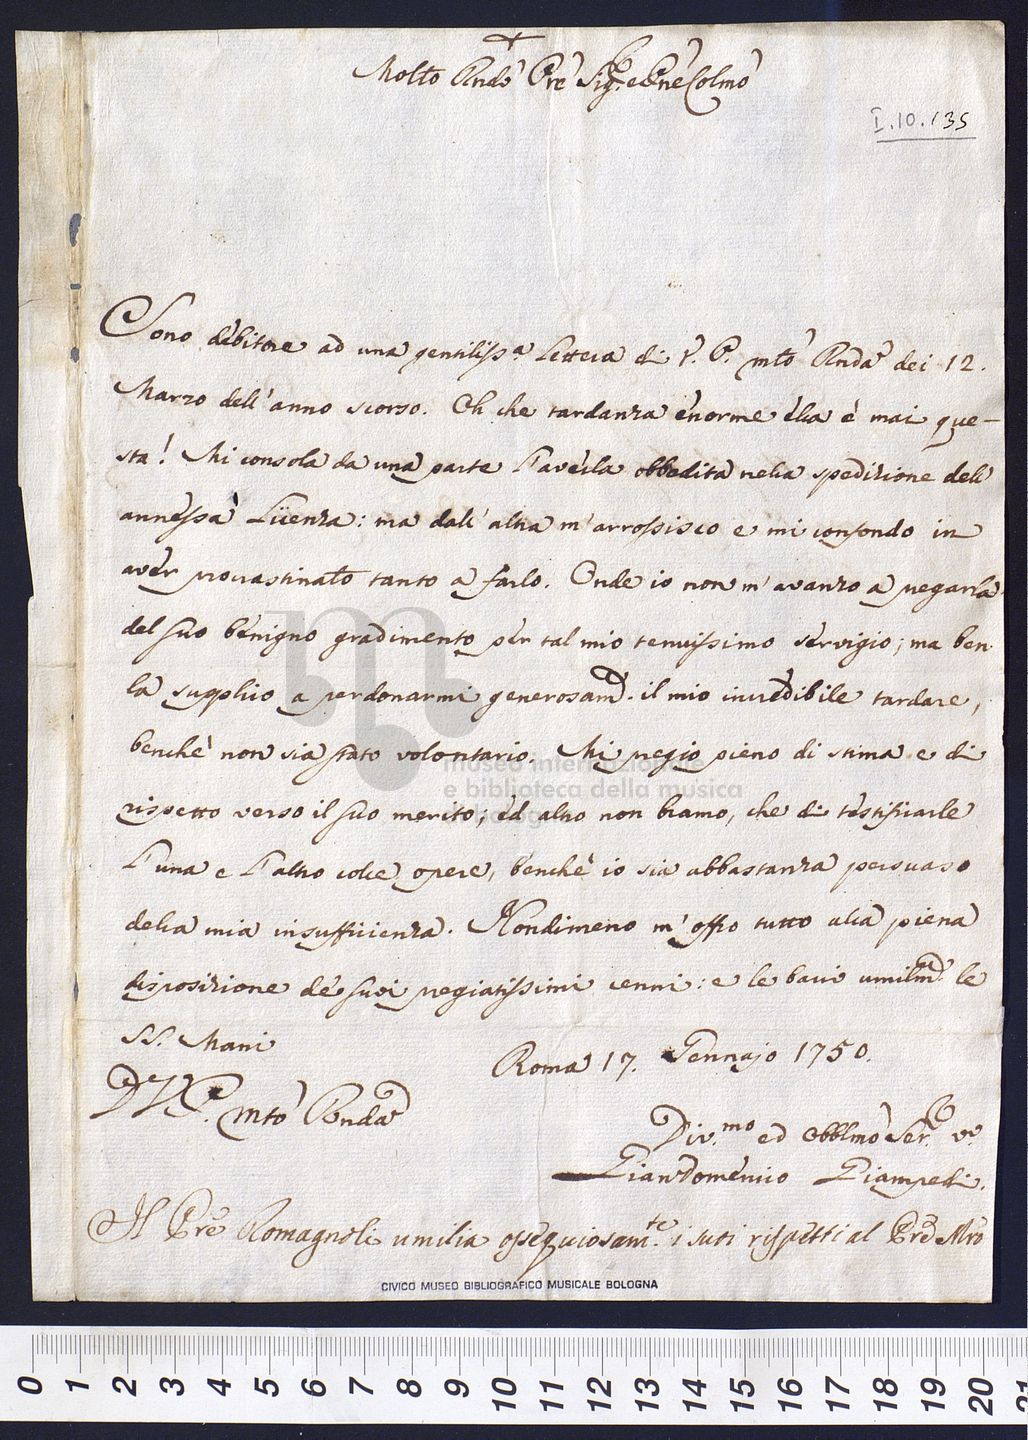 +
Molto Rndo Pre Sigr. e Pne Colmo
I.10.135
Sono debitore ad una gentiliss.a Lettera di V. P. mto Rnda dei 12.
Marzo dell'anno scorso. Oh che tardanza enorme ella è mai que-
sta! Mi consola da una parte l'averla obbedita nella spedizione dell'
annessa Licenza: ma dall'altra m'arrossisco e mi confondo in
aver procrastinato tanto a farlo. Onde io non m'avanzo a pregarla
del suo benigno gradimento per tal mio tenuissimo servigio; ma ben
la supplico a perdonarmi generosam.e il mio incredibile tardare,
benchè non sia stato volontario. Mi pregio pieno di stima e di
rispetto verso il suo merito; ed altro non bramo, che di testificarle
l'una e l'altro colle opere, benchè io sia abbastanza persuaso
della mia insufficienza. Nondimeno m'offro tutto alla piena
disposizione de' suoi pregiatissimi cenni: e le bacio umilme le
SS. Mani
Roma 17. Gennajo 1750.
D V. P. mto Rnda
Div.mo ed Obblmo Ser.e ve.
Giandomenico Giampedi.
Il Pre Romagnoli umilia ossequiosam.te i suoi rispetti al Pre Mro
museo internazionale
e biblioteca della musica
CIVICO MUSEO BIBLIOGRAFICO MUSICALE BOLOGNA
0 1 2 3 4 5 6 7 8 9 10 11 12 13 14 15 16 17 18 19 20 21